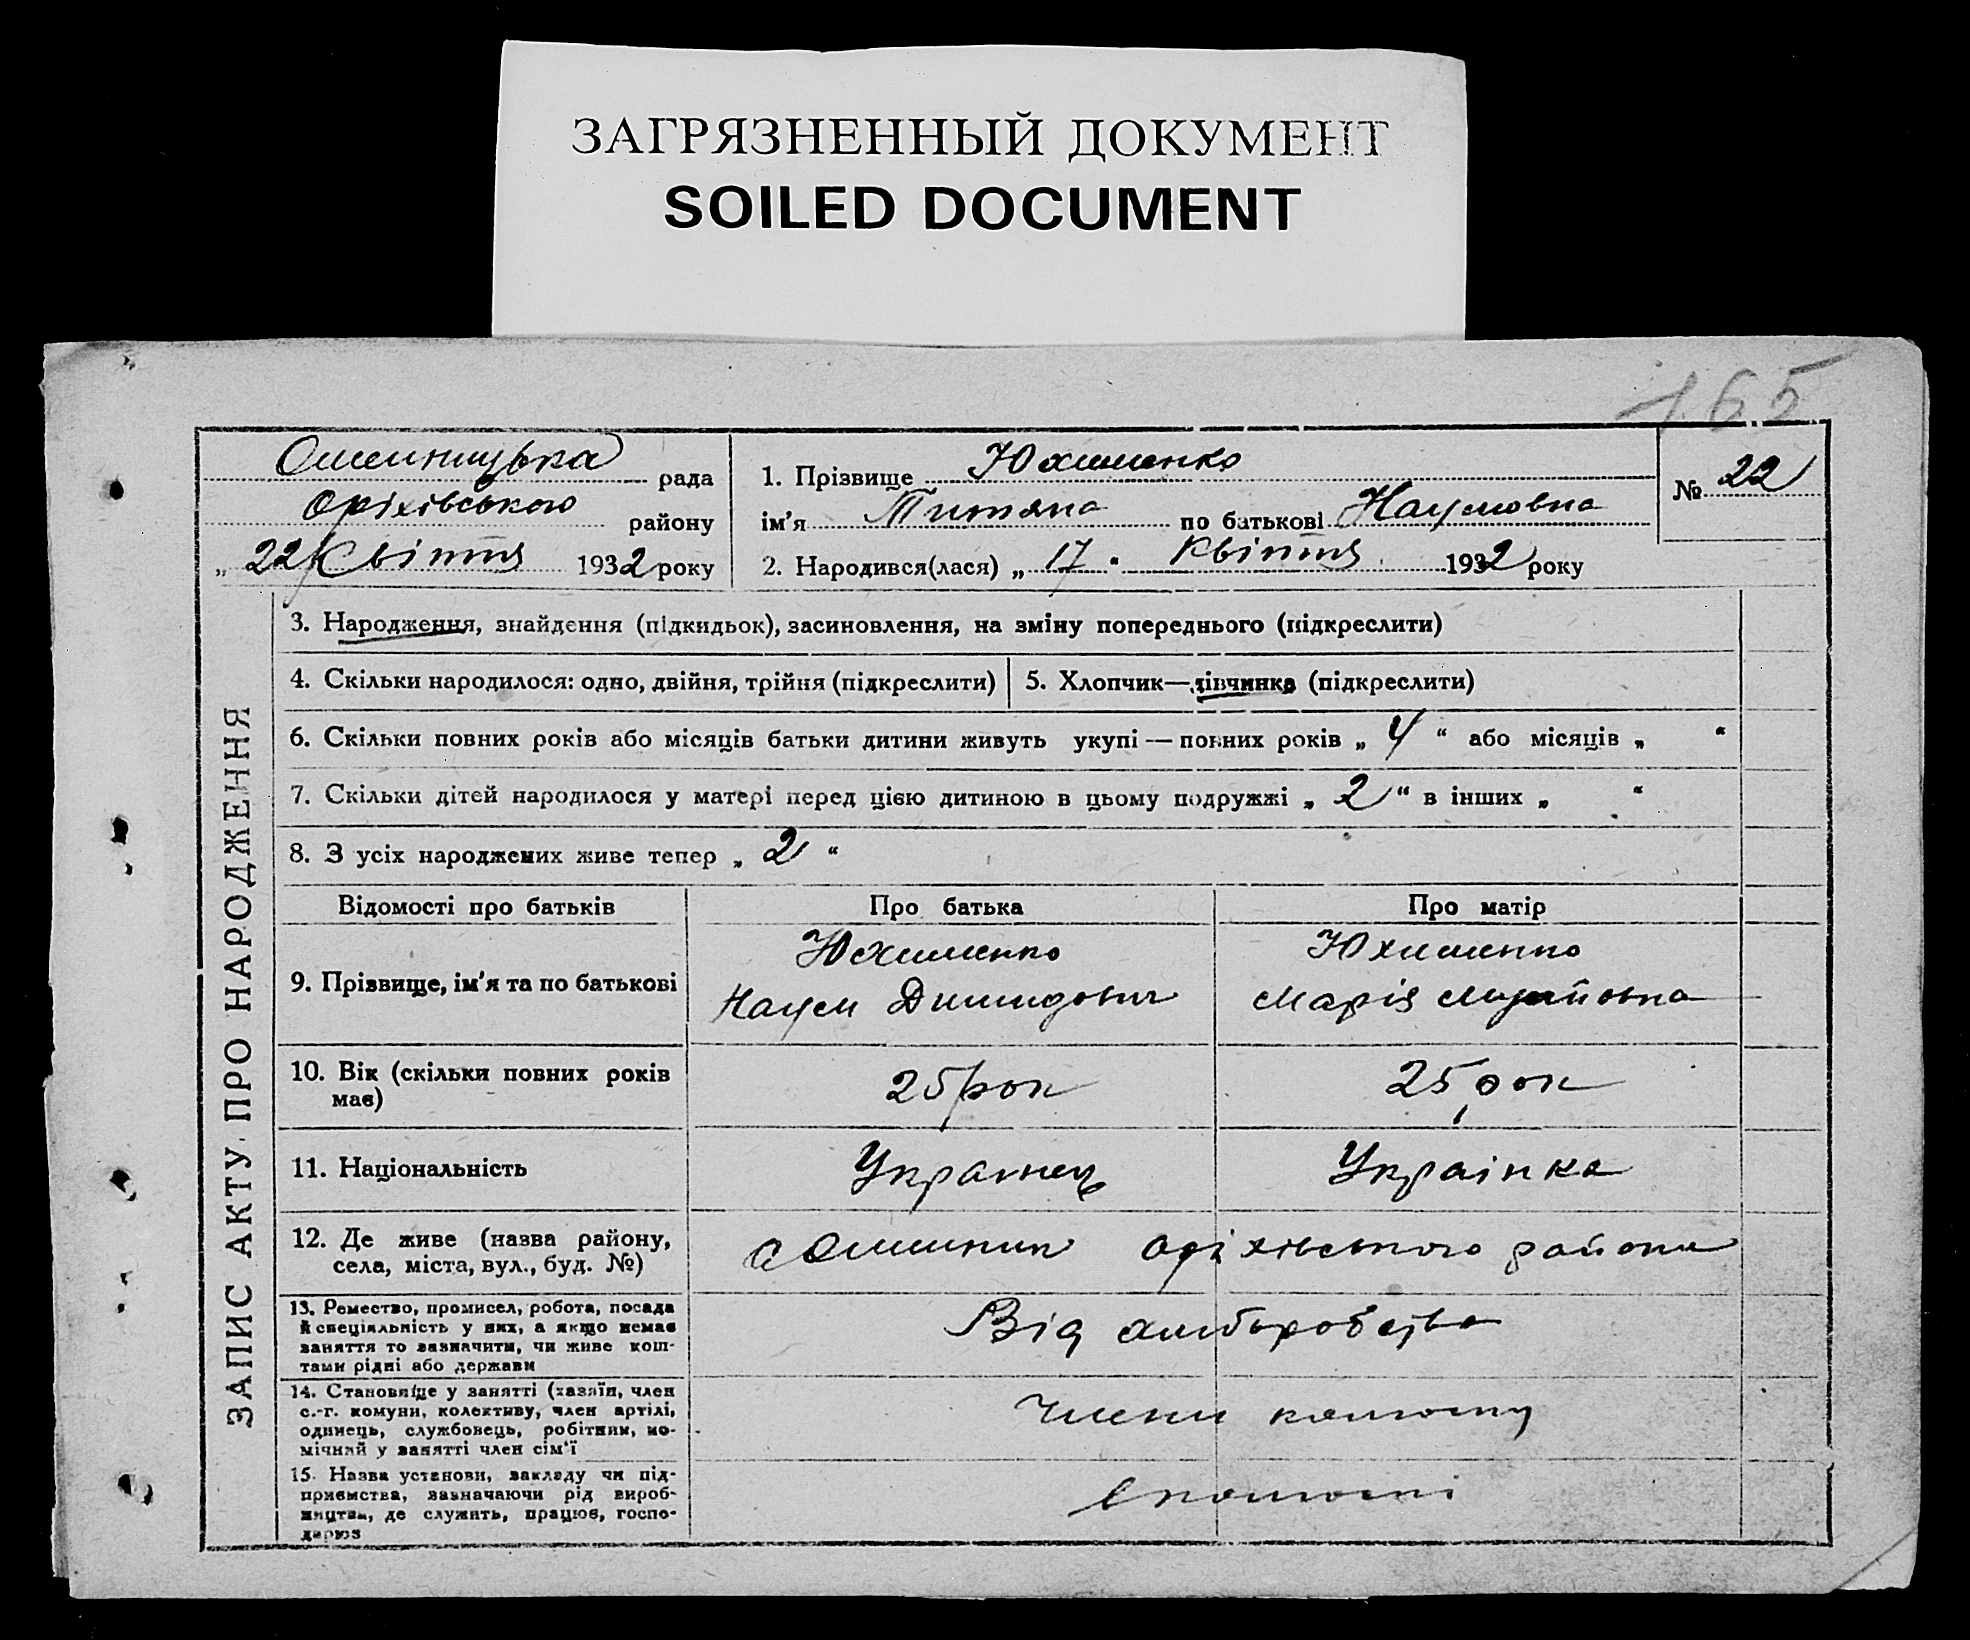 ЗАГРЯЗНЕННЫЙ ДОКУМЕНТ
SOILED DOCUMENT
165
рада
Оріхівського району
„ 22 Квітня 1932 року
1. Прізвище Юхименко
ім'я Титяна по батькові Наумовна
2. Народився(лася) „ 17 " Квітня 1932 року
№ 22
ЗАПИС АКТУ ПРО НАРОДЖЕННЯ
3. Народження, знайдення (підкидьок), засиновлення, на зміну попереднього (підкреслити)
4. Скільки народилося: одно, двійня, трійня (підкреслити)
5. Хлопчик—дівчинка (підкреслити)
6. Скільки повних років або місяців батьки дитини живуть укупі — повних років „ 4 “ або місяців „ “
7. Скільки дітей народилося у матері перед цією дитиною в цьому подружжі „ 2 “ в інших „ “
8. З усіх народжених живе тепер „ 2 “
Відомості про батьків
Про батька
Про матір
9. Прізвище, ім'я та по батькові
Юхименко
Наум Димидович
Юхименко
Марія
10. Вік (скільки повних років
має)
25 рок
25 рок
11. Національність
Украинец
Украінка
12. Де живе (назва району,
села, міста, вул., буд. №)
с Ошиник Оріхівського району
13. Ремество, промисел, робота, посада
й спеціяльність у них, а якщо немає
заняття то зазначити, чи живе кош-
тами рідні або держави
Від хлиборобства
14. Становище у занятті (хазяїн, член
с.-г. комуни, колективу, член артілі,
одинець, службовець, робітник, по-
мічний у занятті член сім'ї
Члени колгоспу
15. Назва установи, закладу чи під-
приємства, зазначаючи рід вироб-
ництва, де служить, працює, госпо-
дарює
в колгоспі